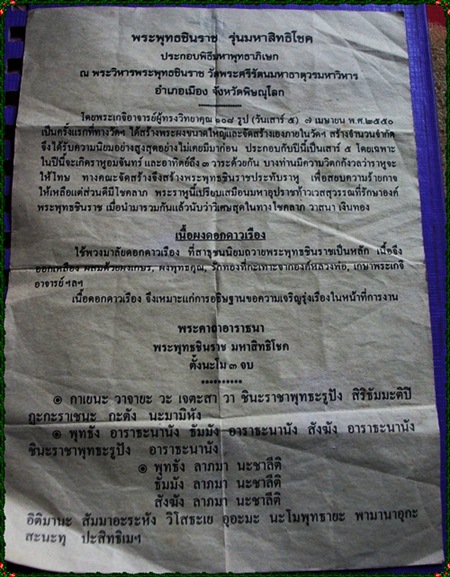 พระพุทธชินราช รุ่นมหาสิทธิโชค
ประกอบพิธีมหาพุทธาภิเษก
ณ พระวิหารพระพุทธชินราช วัดพระศรีรัตนมหาธาตุวรมหาวิหาร
อำเภอเมือง จังหวัดพิษณุโลก
โดยพระเกจิอาจารย์ผู้ทรงวิทยาคุณ ๑๐๘ รูป (วันเสาร์ ๕) ๗ เมษายน พ.ศ.๒๕๕๐
เป็นครั้งแรกที่ทางวัดฯ ได้สร้างพระผงขนาดใหญ่และจัดสร้างเองภายในวัดฯ สร้างจำนวนจำกัด
จึงได้รับความนิยมอย่างสูงสุดอย่างไม่เคยมีมาก่อน ประกอบกับปีนี้เป็นเสาร์ ๕ โดยเฉพาะ
ในปีนี้จะเกิดราหูอมจันทร์ และอาทิตย์ถึง ๓ วาระด้วยกัน บางท่านมีความวิตกกังวลว่าราหูจะ
ให้โทษ ทางคณะจัดสร้างจึงสร้างพระพุทธชินราชประทับราหู เพื่อสยบความร้ายกาจ
ให้เหลือแต่ส่วนดีมีโชคลาภ พระราหูนี้เปรียบเสมือนมหาอุปราชท้าวเวสสุวรรณที่รักษาองค์
พระพุทธชินราช เมื่อนำมารวมกันแล้วนับว่าวิเศษสุดในทางโชคลาภ วาสนา เงินทอง
เนื้อผงดอกดาวเรือง
ใช้พวงมาลัยดอกดาวเรือง ที่สาธุชนนิยมถวายพระพุทธชินราชเป็นหลัก เนื้อจึง
ออกเหลือง ผสมด้วยผงเกษร, ผงพุทธคุณ, รักทองที่กะเทาะจากองค์หลวงพ่อ, เกษาพระเกจิ
อาจารย์ ฯลฯ
เนื้อดอกดาวเรือง จึงเหมาะแก่การอธิษฐานขอความเจริญรุ่งเรืองในหน้าที่การงาน
พระคาถาอาราธนา
พระพุทธชินราช มหาสิทธิโชค
ตั้งนะโม ๓ จบ
๏ กาเยนะ วาจายะ วะ เจตะสา วา ชินะราชาพุทธะรูปัง สิริธัมมะติปิ
ฎะกะราเชนะ กะตัง นะมามิหัง
๏ พุทธัง อาราธะนานัง ธัมมัง อาราธะนานัง สังฆัง อาราธะนานัง
ชินะราชาพุทธะรูปัง อาราธะนานัง
๏ พุทธัง ลาภมา นะชาลีติ
ธัมมัง ลาภมา นะชาลีติ
สังฆัง ลาภมา นะชาลีติ
อิติมานะ สัมมาอะระหัง วิโสธะเย อุอะมะ นะโมพุทธายะ พามานาอุกะ
สะนะทุ ปะสิทธิเมฯ